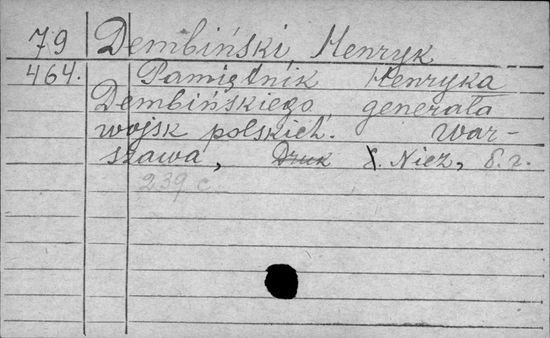 79 Dembiński Henryk
464. Pamiętnik Henryka
Dembińskiego, generała
wojsk polskich. War-
szawa, Druk X. Niez, b.r.
239 c